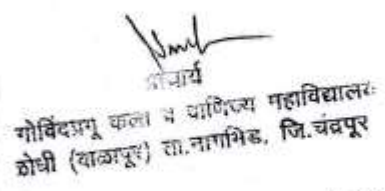 प्राचार्य
गोविंदप्रभू कला व वाणिज्य महाविद्यालय
(वाळापूर) ता.नागभिड, जि.चंद्रपूर